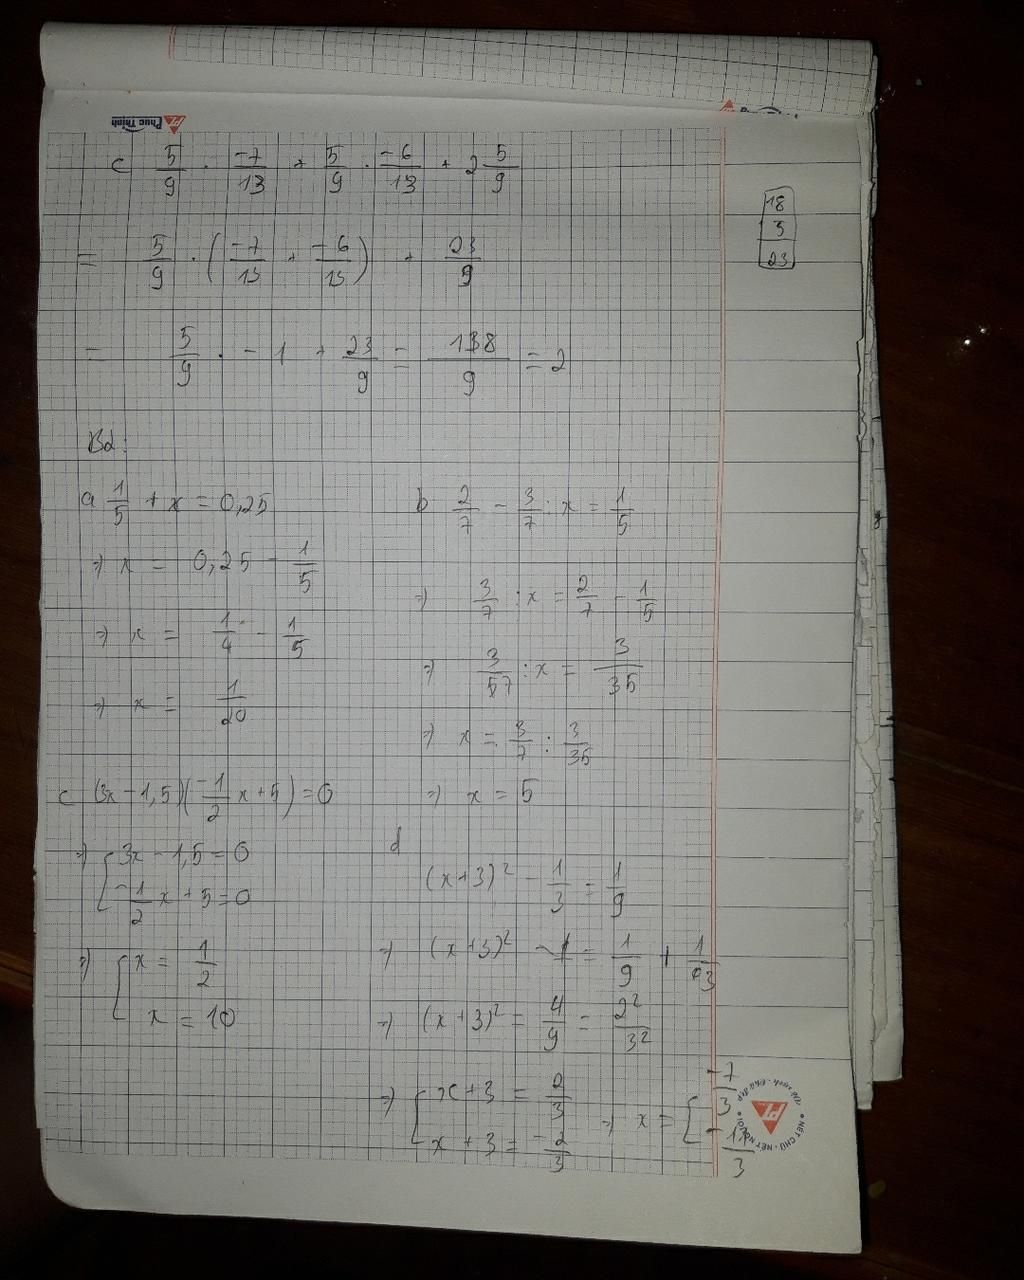 Phuc Thinh
c 5/9 . -7/13 + 5/9 . -6/13 + 2 5/9
18
5
23
= 5/9 . (-7/13 + -6/13) + 23/9
= 5/9 . -1 + 23/9 = 18/9 = 2
B2:
a 1/5 + x = 0,25
⇒ x = 0,25 - 1/5
⇒ x = 1/4 - 1/5
⇒ x = 1/20
b 2/7 - 3/7 : x = 1/5
⇒ 3/7 : x = 2/7 - 1/5
⇒ 3/7 : x = 3/35
⇒ x = 3/7 : 3/35
⇒ x = 5
c (3x - 1,5)(-1/2 x + 5) = 0
⇒ [ 3x - 1,5 = 0
-1/2 x + 5 = 0
⇒ [ x = 1/2
x = 10
d
(x+3)² - 1/3 = 1/9
⇒ (x+3)² = 1/9 + 1/3
⇒ (x+3)² = 4/9 = 2²/3²
⇒ [ x+3 = 2/3
x + 3 = -2/3
⇒ x = [ -7/3
-11/3
NÉT CHỮ - NẾT NGƯỜI
Vở sạch - Chữ đẹp